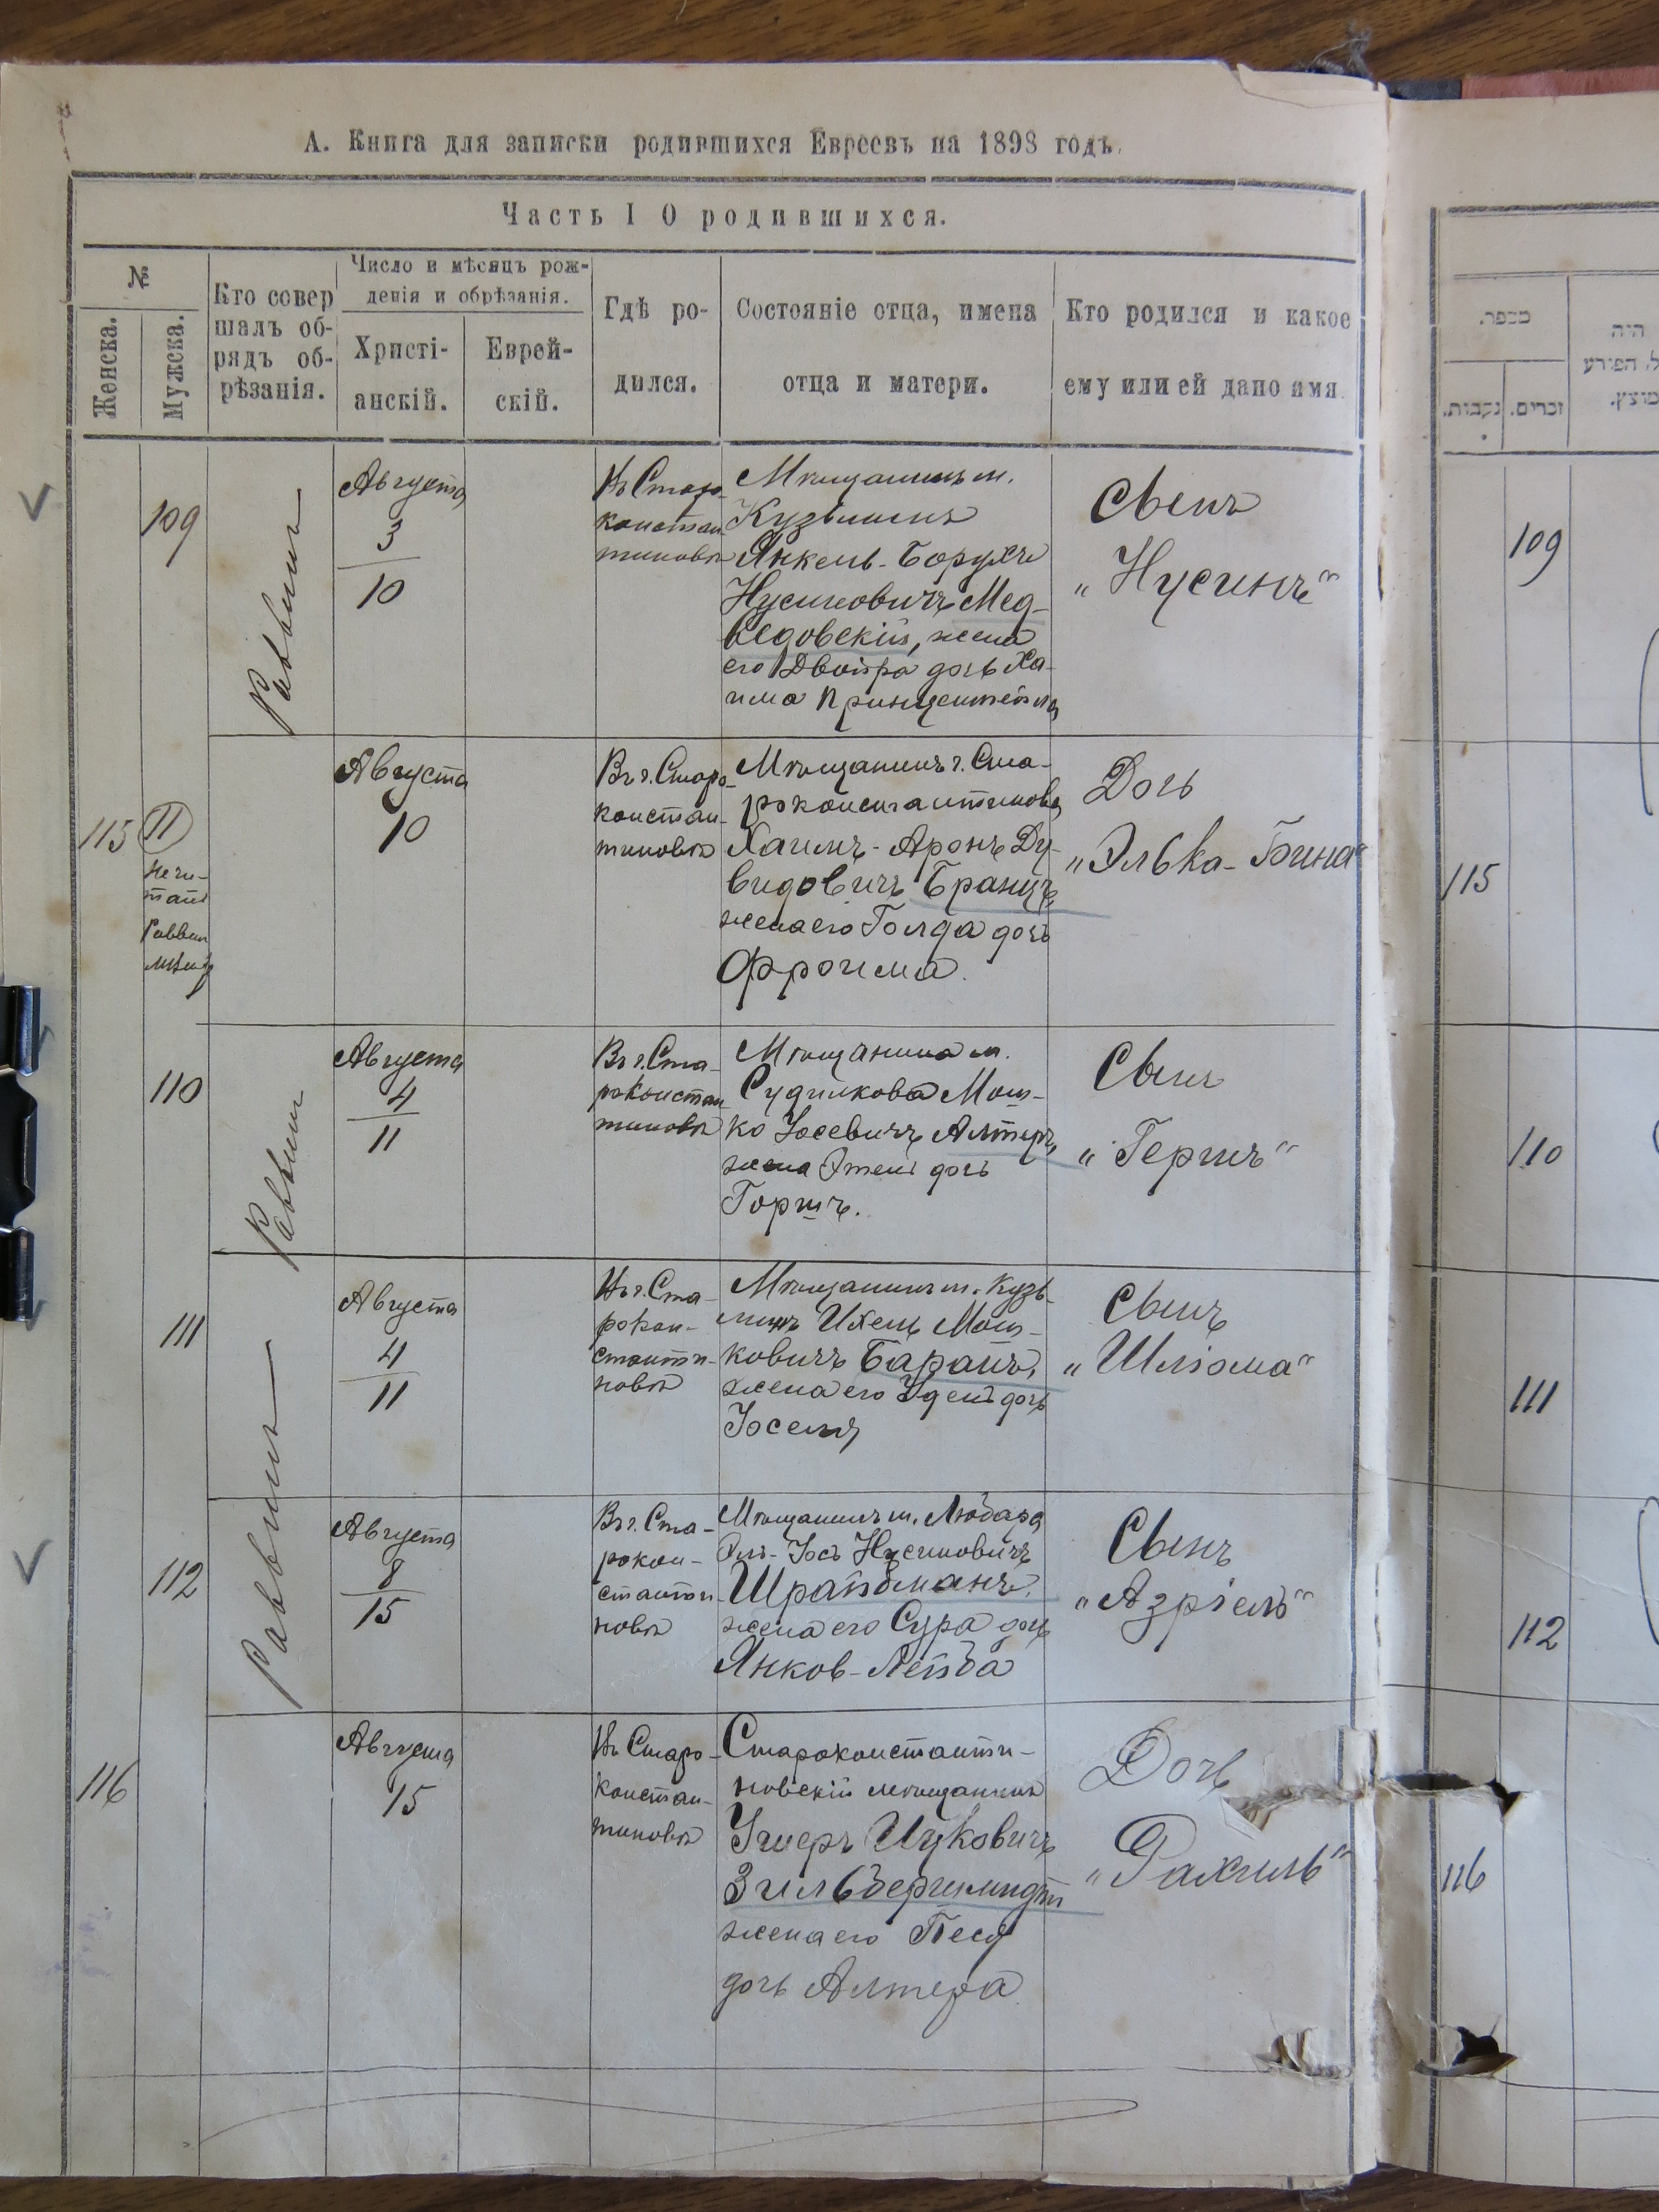 А. Книга для записки родившихся Евреевъ на 1898 годъ.
Часть I О родившихся.
№
Женска.
Мужска.
Кто совер
шалъ об-
рядъ об-
рѣзанія.
Число и мѣсяцъ рож-
денія и обрѣзанія.
Христі-
анскій.
Еврей-
скій.
Гдѣ ро-
дился.
Состояніе отца, имена
отца и матери.
Кто родился и какое
ему или ей дано имя.
109
Раввинъ
Августа
3
10
Въ Старо-
констан-
тиновѣ
Мѣщанинъ м.
Кузьминъ
Янкель-Борухъ
Нусиновичъ Мед-
ведовскій, жена
его Двойра дочь Ха-
има
Сынъ
„Нусинъ“
115
11
Августа
10
Въ г. Старо-
констан-
тиновѣ
Мѣщанинъ г. Ста-
роконстантинова
Хаимъ-Аронъ Ду-
видовичъ Бранцъ,
жена его Голда дочь
Фроима.
Дочь
„Элька-Бина“
110
Раввинъ
Августа
4
11
Въ г. Ста-
роконстан-
тиновѣ
Мѣщанина м.
Судилкова Мош-
ко Іосевичъ Алтеръ,
жена Этель дочь
Горшъ.
Сынъ
„Гершъ“
111
Раввинъ
Августа
4
11
Въ г. Ста-
рокон-
станти-
новѣ
Мѣщанинъ м. Кузь-
минъ Ихель Мош-
ковичъ Баранъ,
жена его Удель дочь
Іоселя
Сынъ
„Шліома“
112
Августа
8
15
Въ г. Ста-
рокон-
станти-
новѣ
Мѣщанинъ м. Любара
Эль-Іось Нусиновичъ
Шрайбманъ,
жена его Сура дочь
Янков-Лейба
Сынъ
„Азріель“
116
Августа
15
Въ Старо-
констан-
тиновѣ
Староконстанти-
новскій мѣщанинъ
Ушеръ Ицковичъ
Зильбершмидт
жена его Песя
дочь Алтера
Дочь
„Рахиль“
מספר.
נקבות.
זכרים.
היה
109
115
110
111
112
116